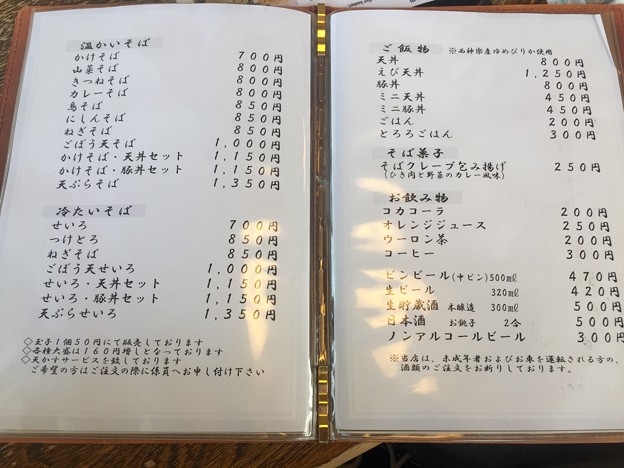 温かいそば
かけそば 700円
山菜そば 800円
きつねそば 800円
カレーそば 800円
鳥そば 850円
にしんそば 850円
ねぎそば 850円
ごぼう天そば 1,000円
かけそば・天丼セット 1,150円
かけそば・豚丼セット 1,150円
天ぷらそば 1,350円
冷たいそば
せいろ 700円
つけとろ 850円
ねぎそば 850円
ごぼう天せいろ 1,000円
せいろ・天丼セット 1,150円
せいろ・豚丼セット 1,150円
天ぷらせいろ 1,350円
◇玉子1個50円にて販売しております
◇各種大盛は160円増しとなっております
◇天かすサービスを致しております
ご希望の方はご注文の際に係員へお申し付け下さい
ご飯物 ※西神楽産ゆめぴりか使用
天丼 800円
えび天丼 1,250円
豚丼 800円
ミニ天丼 450円
ミニ豚丼 450円
ごはん 200円
とろろごはん 300円
そば菓子
そばクレープ包み揚げ 250円
(ひき肉と野菜のカレー風味)
お飲み物
コカコーラ 200円
オレンジジュース 250円
ウーロン茶 200円
コーヒー 300円
ビンビール(中ビン)500ml 470円
生ビール 320ml 420円
生貯蔵酒 本醸造 300ml 500円
日本酒 お銚子 2合 500円
ノンアルコールビール 300円
※当店は、未成年者およびお車を運転される方の、
酒類のご注文をお断りしております。